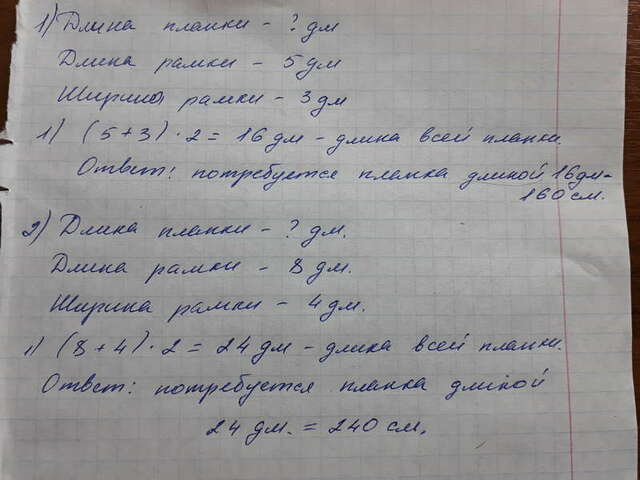 1) Длина планки - ? дм
Длина рамки - 5 дм
Ширина рамки - 3 дм
1) (5 + 3) · 2 = 16 дм - длина всей планки.
Ответ: потребуется планка длиной 16 дм -
160 см.
2) Длина планки - ? дм.
Длина рамки - 8 дм.
Ширина рамки - 4 дм.
1) (8 + 4) · 2 = 24 дм - длина всей планки.
Ответ: потребуется планка длиной
24 дм. = 240 см.